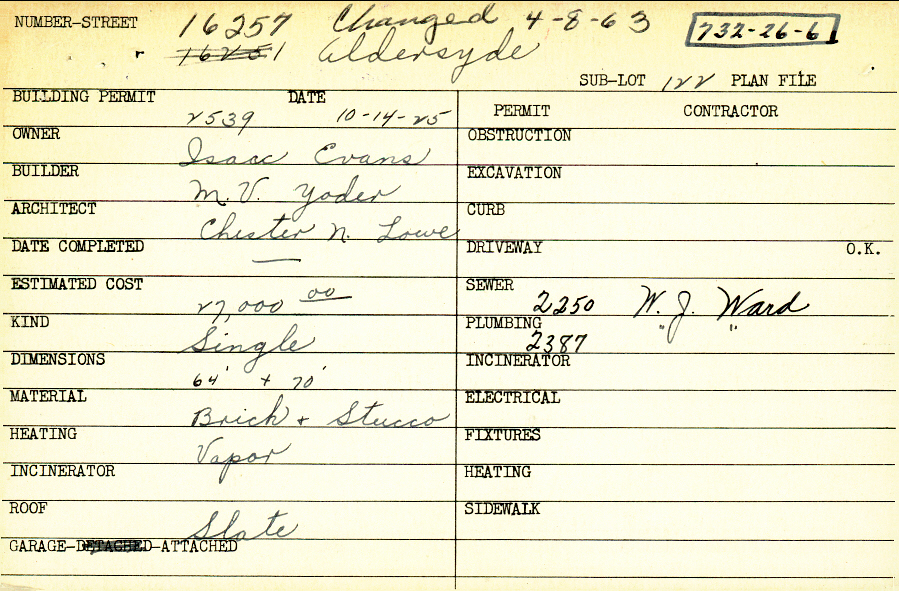 NUMBER-STREET 16257 Changed 4-8-63 732-26-6
r 16251 Aldersyde
SUB-LOT 122 PLAN FILE
BUILDING PERMIT 2539 DATE 10-14-25
OWNER Isaac Evans
BUILDER M. V. Yoder
ARCHITECT Chester N. Lowe
DATE COMPLETED —
ESTIMATED COST 27,000 00
KIND Single
DIMENSIONS 64' + 70'
MATERIAL Brick + Stucco
HEATING Vapor
INCINERATOR
ROOF Slate
GARAGE-DETACHED-ATTACHED
PERMIT CONTRACTOR
OBSTRUCTION
EXCAVATION
CURB
DRIVEWAY O.K.
SEWER 2250 W. J. Ward
PLUMBING 2387 " "
INCINERATOR
ELECTRICAL
FIXTURES
HEATING
SIDEWALK